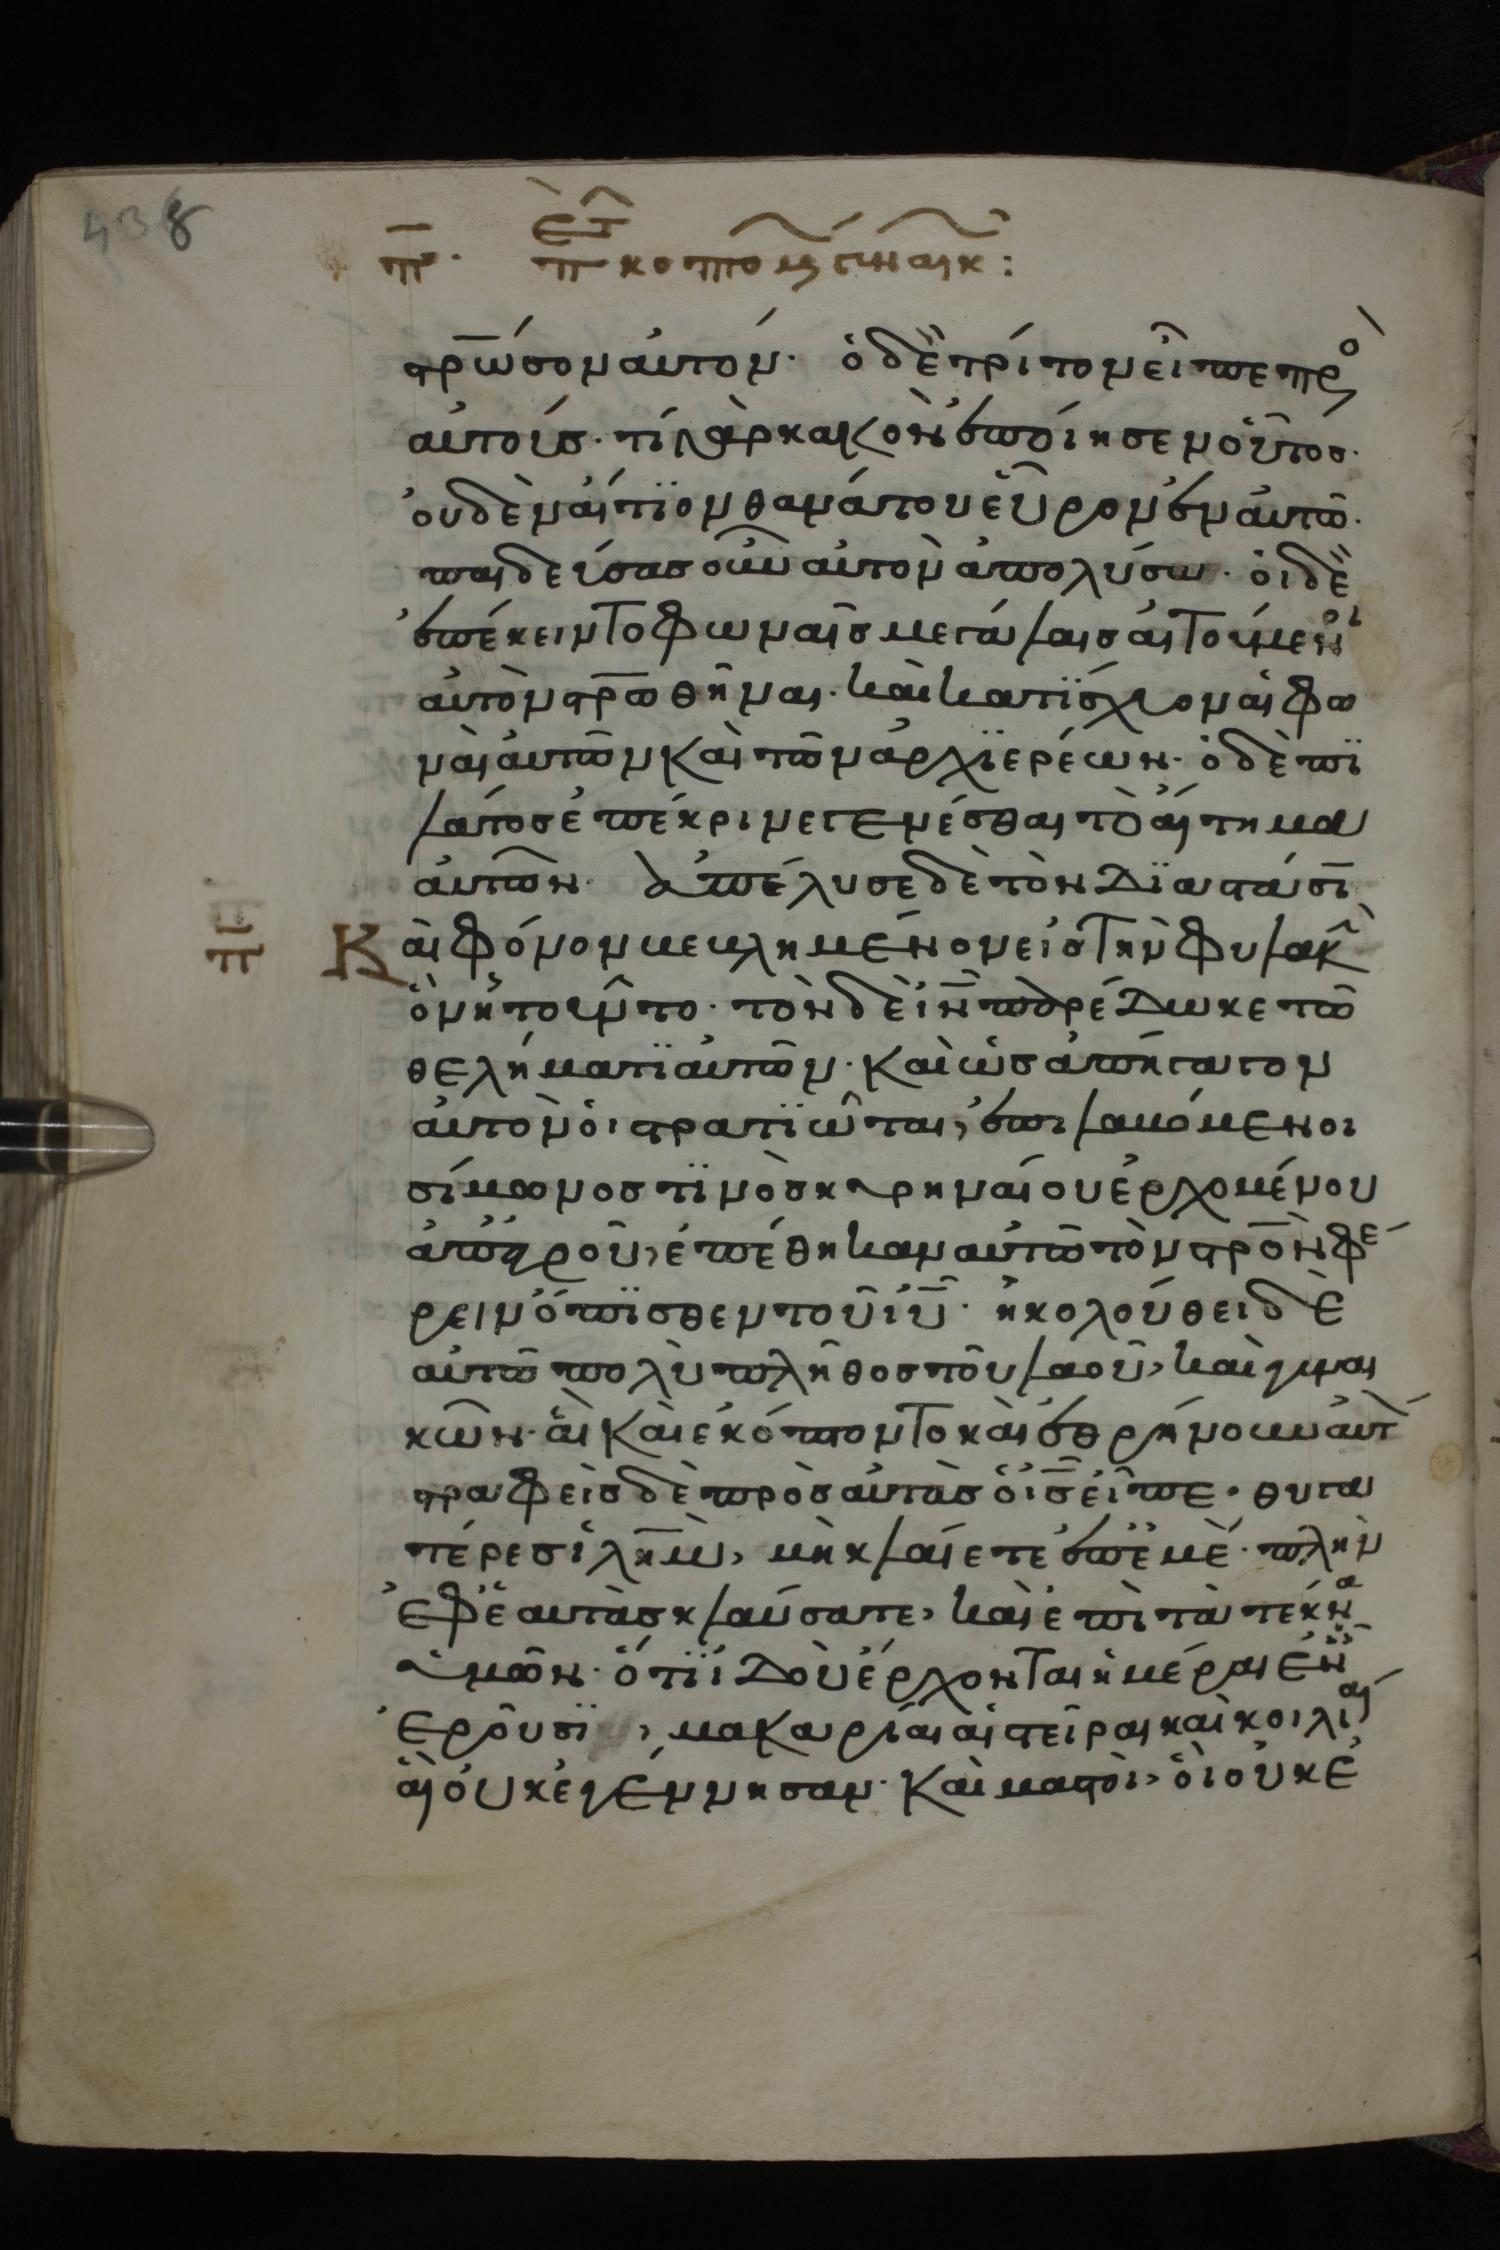 438
π̅. περὶ τῶν κοπτομένων γυναικῶν:
στ̅ρωσον αὐτόν. ὁ δὲ τρίτον εἶπε πρὸς
αὐτοίσ. τί γὰρ κακὸν ἐποίησεν οὗτοσ.
οὐδὲν αἴτϊον θανάτου εὗρον ἐν αὐτῶ.
παιδεύσασ οὖν αὐτὸν ἀπολύσω. οἱ δὲ
ἐπέκειντο φωναῖσ μεγάλαισ αἰτούμενοι
αὐτὸν στ̅ρωθῆναι. καὶ κατΐσχυον αἱ φω
ναὶ αὐτῶν καὶ τῶν ἀρχϊερέων. ὁ δὲ πϊ
λάτοσ ἐπέκρινε γενέσθαι τὸ αἴτημα
αὐτῶν. ἀπέλυσε δὲ τὸν δϊα στάσϊν
καὶ φόνον βεβλημένον εἰσ τὴν φυλακὴν
ὃν ἠτοῦντο. τὸν δὲ ι̅ν̅ παρέδωκε τῶ
θελήματϊ αὐτῶν. καὶ ὡσ ἀπήγαγον
αὐτὸν οἱ στρατϊῶται, ἐπιλαβόμενοι
σίμωνοσ τϊνὸσ κυρηναίου ἐρχομένου
ἀπ᾽ ἀγροῦ, ἐπέθηκαν αὐτῶ τὸν στ̅ρὸν φέ
ρειν ὄπϊσθεν τοῦ ι̅υ̅. ἠκολούθει δὲ
αὐτῶ πολὺ πλῆθοσ τοῦ λαοῦ, καὶ γυναι
κῶν. αἳ καὶ ἐκόπτοντο καὶ ἐθρήνουν αὐτ
στραφεὶσ δὲ πρὸσ αὐτὰσ ὁ ι̅σ̅ εἶπε. θυγα
τέρεσ ι̅λ̅η̅μ̅, μὴ κλαίετε ἐπ᾽ ἐμέ. πλὴν
ἐφ᾽ ἑαυτὰσ κλαύσατε, καὶ ἐπὶ τὰ τέκνα
ὑμῶν. ὅτϊ ἰδοὺ ἔρχονται ἡμέραι ἐν
ἐροῦσϊ, μακαρίαι αἱ στεῖραι καὶ κοιλίαι
αἳ οὐκ ἐγέννησαν. καὶ μαστοὶ, οἳ οὐκ ἐ